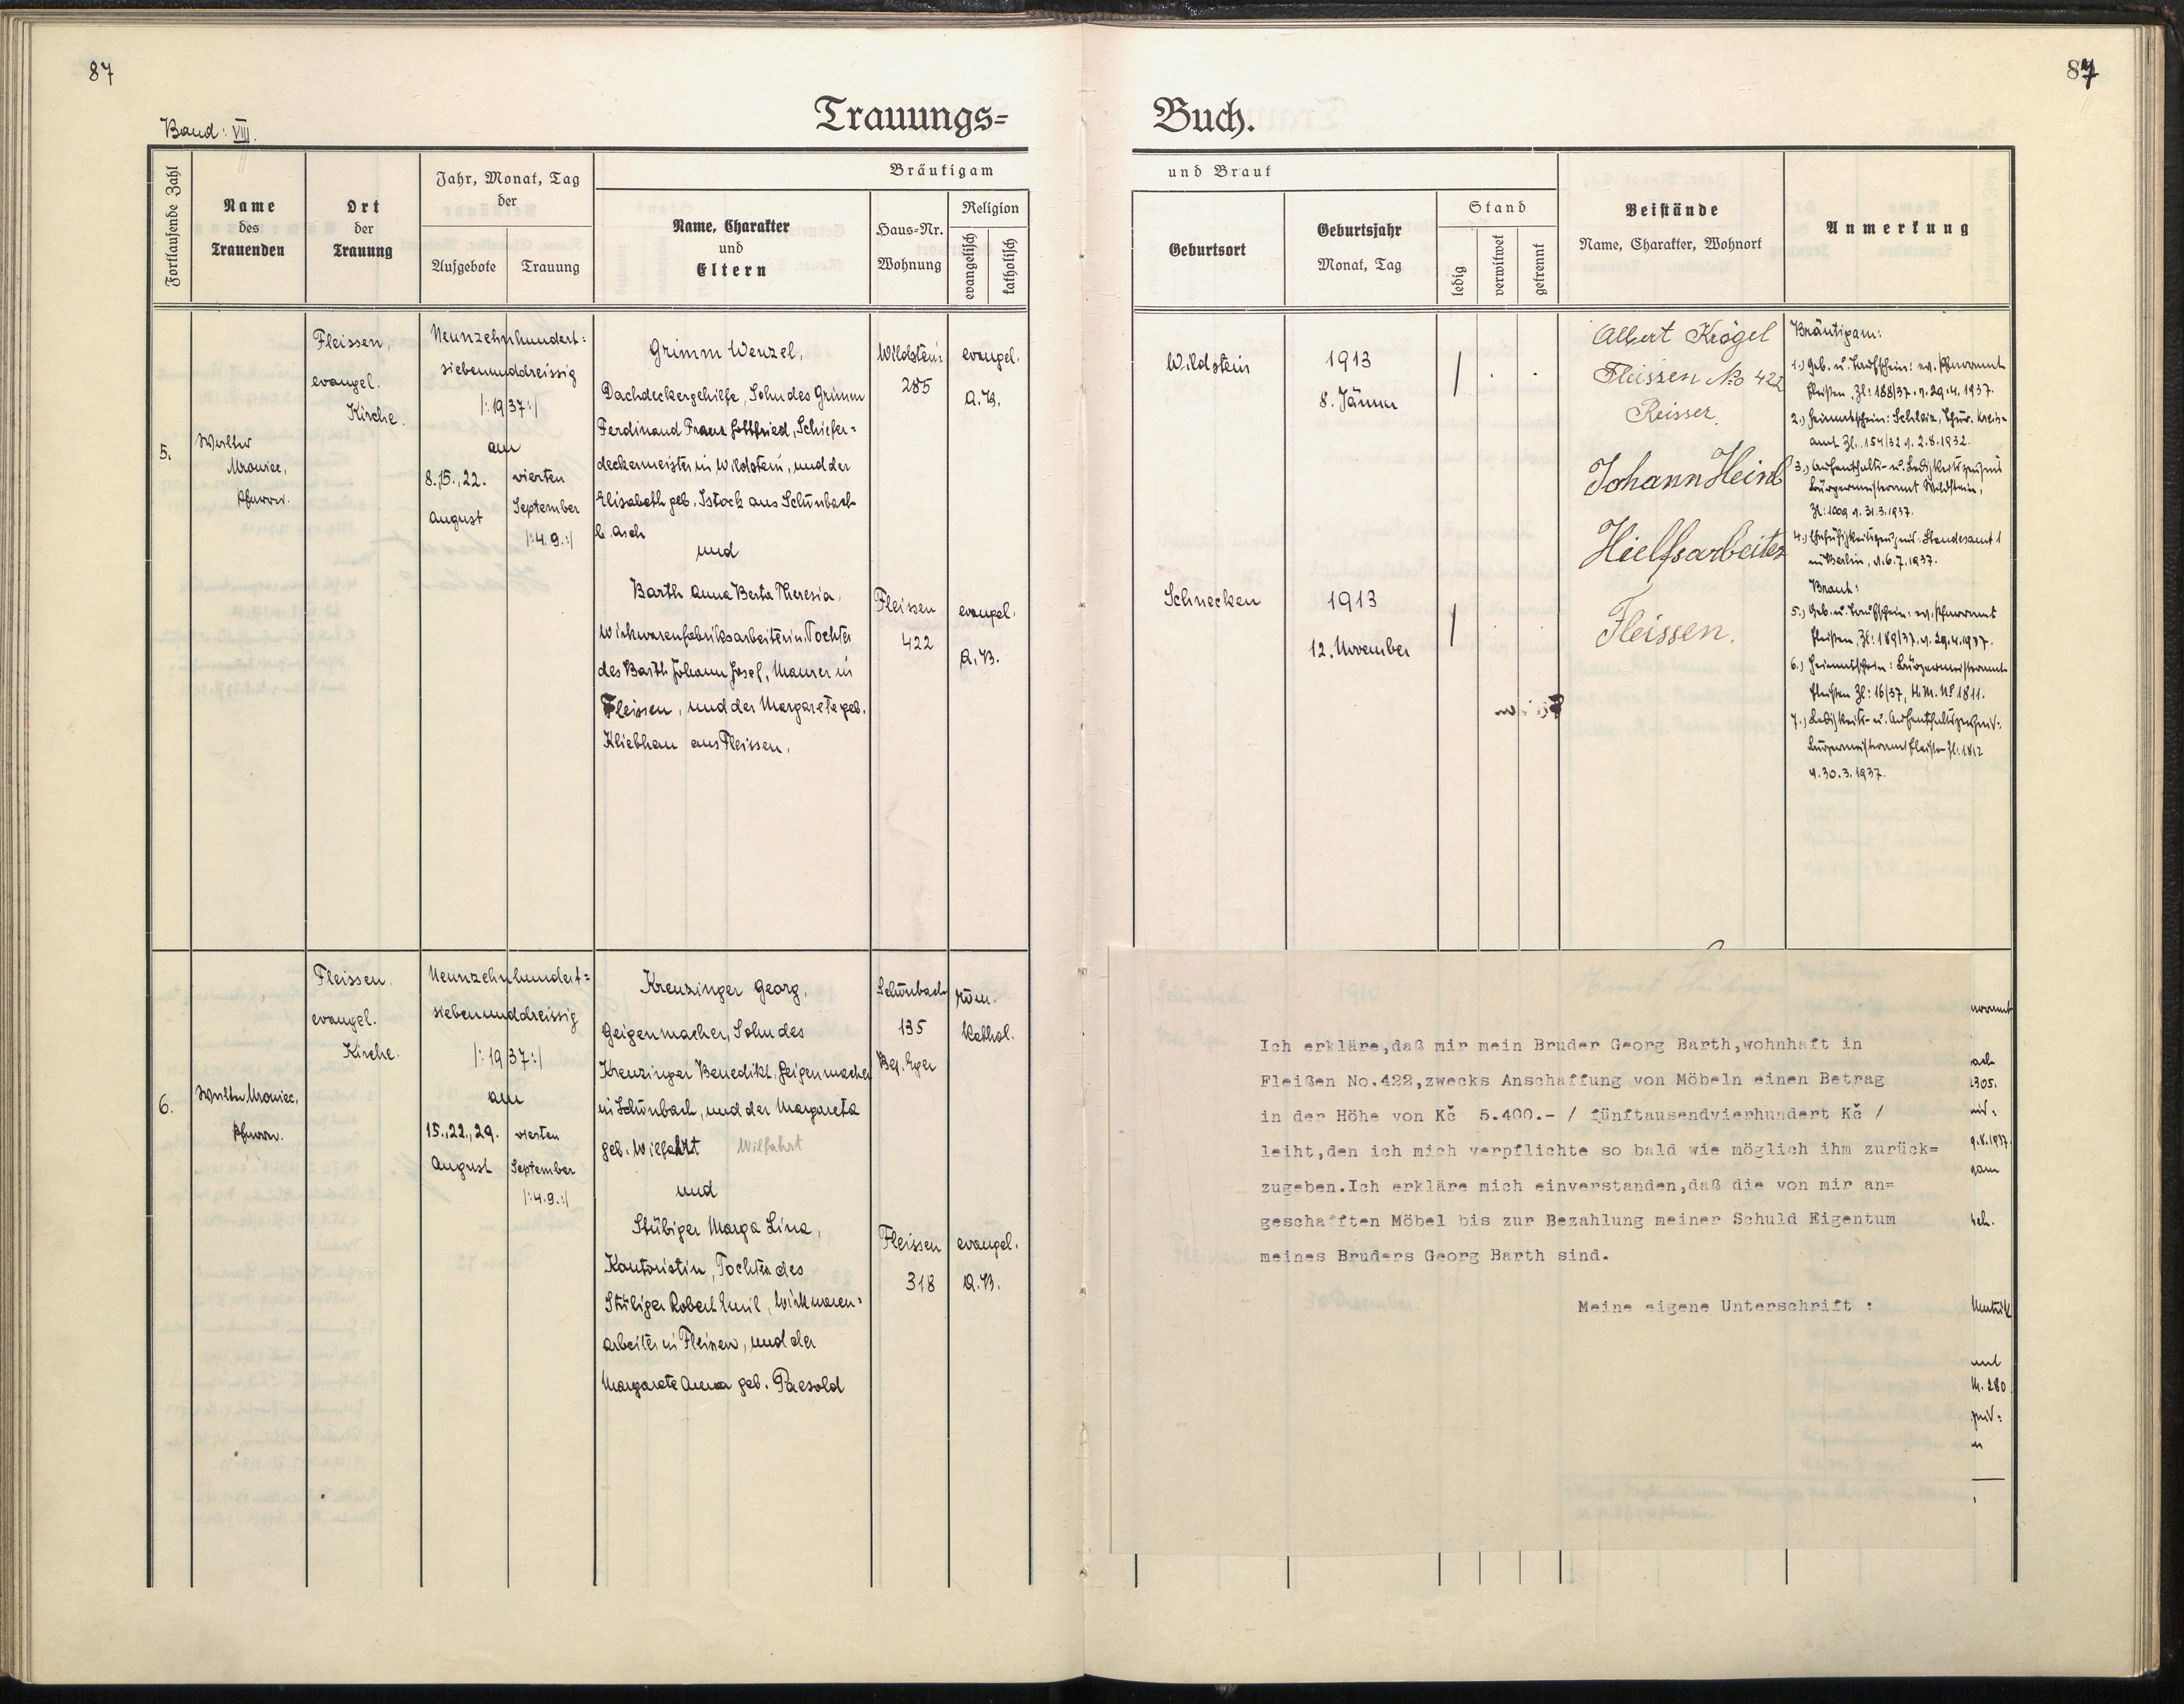 87
87
Band: VIII.
Trauungs=
Buch.
Fortlaufende Zahl
Name
des
Trauenden
Ort
der
Trauung
Jahr, Monat, Tag
der
Aufgebote
Trauung
Bräutigam
Name, Charakter
und
Eltern
Haus-Nr.
Wohnung
Religion
evangelisch
katholisch
und Braut
Geburtsort
Geburtsjahr
Monat, Tag
Stand
ledig
verwitwet
getrennt
Beistände
Name, Charakter, Wohnort
Anmerkung
5.
Walter
Mrowiec,
Pfarrer.
Fleissen,
evangel.
Kirche.
Neunzehnhundert=
siebenunddreissig
|:1937:|
am
8.,15.,22.
August
vierten
September
|:4.9.:|
Grimm Wenzel,
Dachdeckergehilfe, Sohn des Grimm
Ferdinand Franz Gottfried, Schiefer=
deckermeister in Wildstein, und der
Elisabeth geb. Istock aus Schönbach
b. Asch
und
Barth Anna Berta Theresia,
Wirkwarenfabriksarbeiterin, Tochter
des Barth Johann Josef, Maurer in
Fleissen, und der Margarete geb.
Kliebhan aus Fleissen.
Wildstein
285
evangel.
A.B.
Fleissen
422
evangel.
A.B.
Wildstein
1913
8. Jänner
Schnecken
1913
12. November
Albert Krögel
Fleissen No 422
Reisser.
Johann Heinl
Hielfsarbeiter
Fleissen.
Bräutigam:
1.) Geb. u. Taufschein: ev. Pfarramt
Fleißen, Zl: 188/37. v. 29.4.1937.
2.) Heimatschein: Schleiz, Thür. Kreis=
amt Zl. 154/32 v. 2.8.1932.
3.) Aufenthalts- u. Ledigkeitszeugnis
Bürgermeisteramt Wildstein,
Zl: 1009 v. 31.3.1937.
4.) Ehefähigkeitszeugnis: Standesamt 1
in Berlin, v. 6.7.1937.
Braut:
5.) Geb. u. Taufschein: ev. Pfarramt
Fleißen, Zl: 189/37. v. 29.4.1937.
6.) Heimatschein: Bürgermeisteramt
Fleißen Zl: 16/37, H.M. No 1811.
7.) Ledigkeits- u. Aufenthaltszeugnis:
Bürgermeisteramt Fleißen Zl: 1812
v. 30.3.1937.
6.
Walter Mrowiec,
Pfarrer.
Fleissen
evangel.
Kirche.
Neunzehnhundert=
siebenunddreissig
|:1937:|
am
15.,22.,29.
August
vierten
September
|:4.9.:|
Kreuzinger Georg,
Geigenmacher, Sohn des
Kreuzinger Benedikt, Geigenmacher
in Schönbach, und der Margareta
geb. Wilfahrt Wilfahrt
und
Stübiger Marga Lina,
Kontoristin, Tochter des
Stübiger Robert Emil, Wirkwaren=
arbeiter in Fleissen, und der
Margarete Anna geb. Paesold
Schönbach
135
Bez. Eger
röm.
kathol.
Fleissen
318
evangel.
A.B.
Ich erkläre,daß mir mein Bruder Georg Barth,wohnhaft in
Fleißen No.422,zwecks Anschaffung von Möbeln einen Betrag
in der Höhe von Kč 5.400.- / fünftausendvierhundert Kč /
leiht,den ich mich verpflichte so bald wie möglich ihm zurück=
zugeben.Ich erkläre mich einverstanden,daß die von mir an=
geschafften Möbel bis zur Bezahlung meiner Schuld Eigentum
meines Bruders Georg Barth sind.
Meine eigene Unterschrift :
1305.
9.8.1937.
M. 280